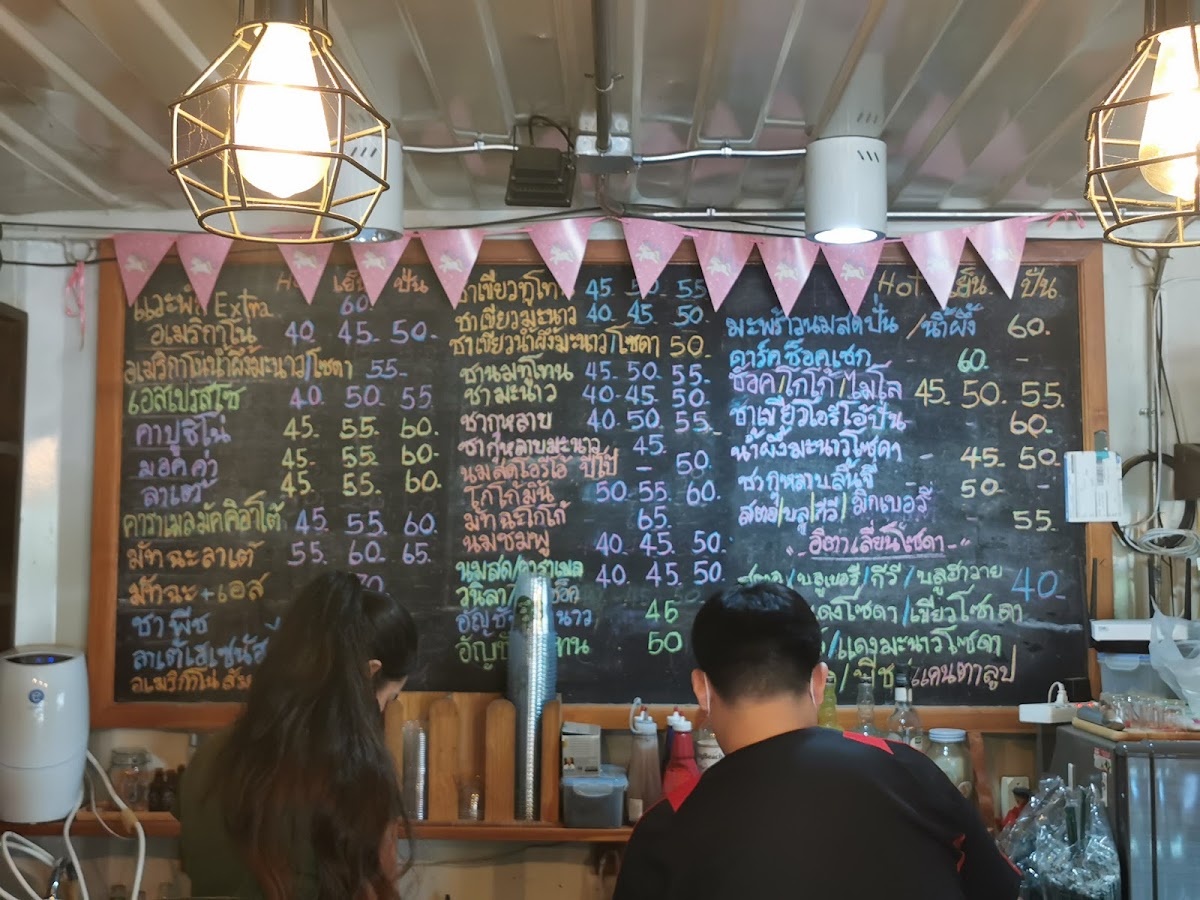 Extra 60.
อเมริกาโน่ 40. 45. 50.
อเมริกาโน่น้ำผึ้งมะนาว/โซดา 55.
เอสเปรสโซ 40. 50. 55
คาปูชิโน่ 45. 55. 60.
มอคค่า 45. 55. 60.
ลาเต้ 45. 55. 60.
คาราเมลมัคคิอาโต้ 45. 55. 60.
มัทฉะลาเต้ 55. 60. 65.
มัทฉะ+เอส 70
ชาพีช
อเมริกาโน่
ปั่น
ชาเขียวทูโทน 45. 50. 55
ชาเขียวมะนาว 40. 45. 50
ชาเขียวน้ำผึ้งมะนาว/โซดา 50.
ชานมทูโทน 45. 50. 55
ชามะนาว 40. 45. 50.
ชากุหลาบ 40. 50. 55
ชากุหลาบมะนาว 45.
นมสดโอริโอ้ ปั่น - 50.
โกโก้มิ้น 50. 55. 60.
มัทฉะโกโก้ 65.
นมชมพู 40. 45. 50.
นมสด/คาราเมล
40. 45. 50
45
50
Hot เย็น ปั่น
มะพร้าวนมสดปั่น /น้ำผึ้ง 60.
ดาร์คช็อคเชก 60. -
ช็อค/โกโก้/ไมโล 45. 50. 55.
ชาเขียวโอริโอ้ปั่น 60.
น้ำผึ้งมะนาวโซดา - 45. 50.
ชากุหลาบลิ้นจี่ - 50. -
สตอ/บลู/กีวี/มิกเบอรี่ 55.
"อิตาเลี่ยนโซดา"
/บลูเบอรี่/กีวี/บลูฮาวาย 40.
แดงโซดา/เขียวโซดา
/แดงมะนาวโซดา
/พีช /แคนตาลูป